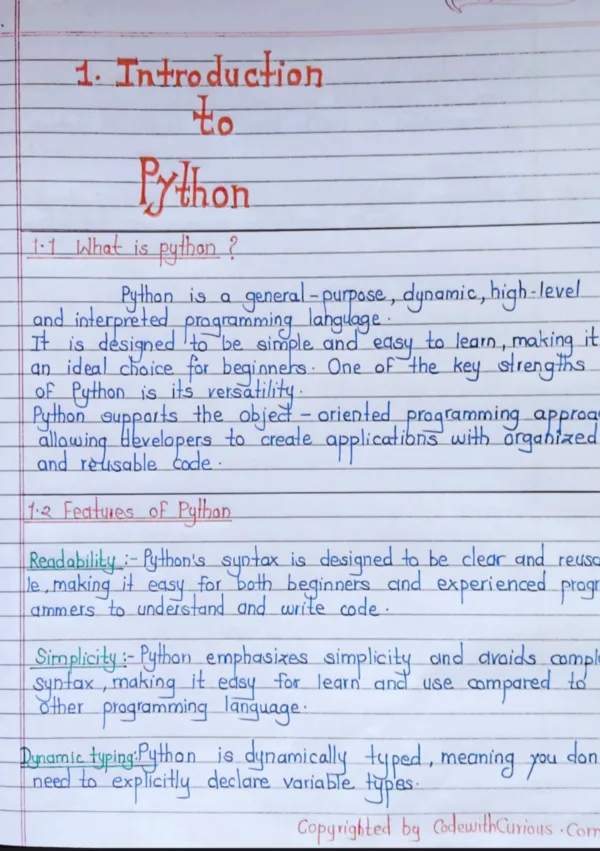 1. Introduction
to
Python
1.1 What is python ?
Python is a general-purpose, dynamic, high-level
and interpreted programming language.
It is designed to be simple and easy to learn, making it
an ideal choice for beginners. One of the key strengths
of Python is its versatility.
Python supports the object-oriented programming approa
allowing developers to create applications with organized
and reusable code.
1.2 Features of Python
Readability :- Python's syntax is designed to be clear and reusa
le, making it easy for both beginners and experienced progr
ammers to understand and write code.
Simplicity :- Python emphasizes simplicity and avoids compl
syntax, making it easy for learn and use compared to
other programming language.
Dynamic typing: Python is dynamically typed, meaning you don
need to explicitly declare variable types.
Copyrighted by CodewithCurious.Com